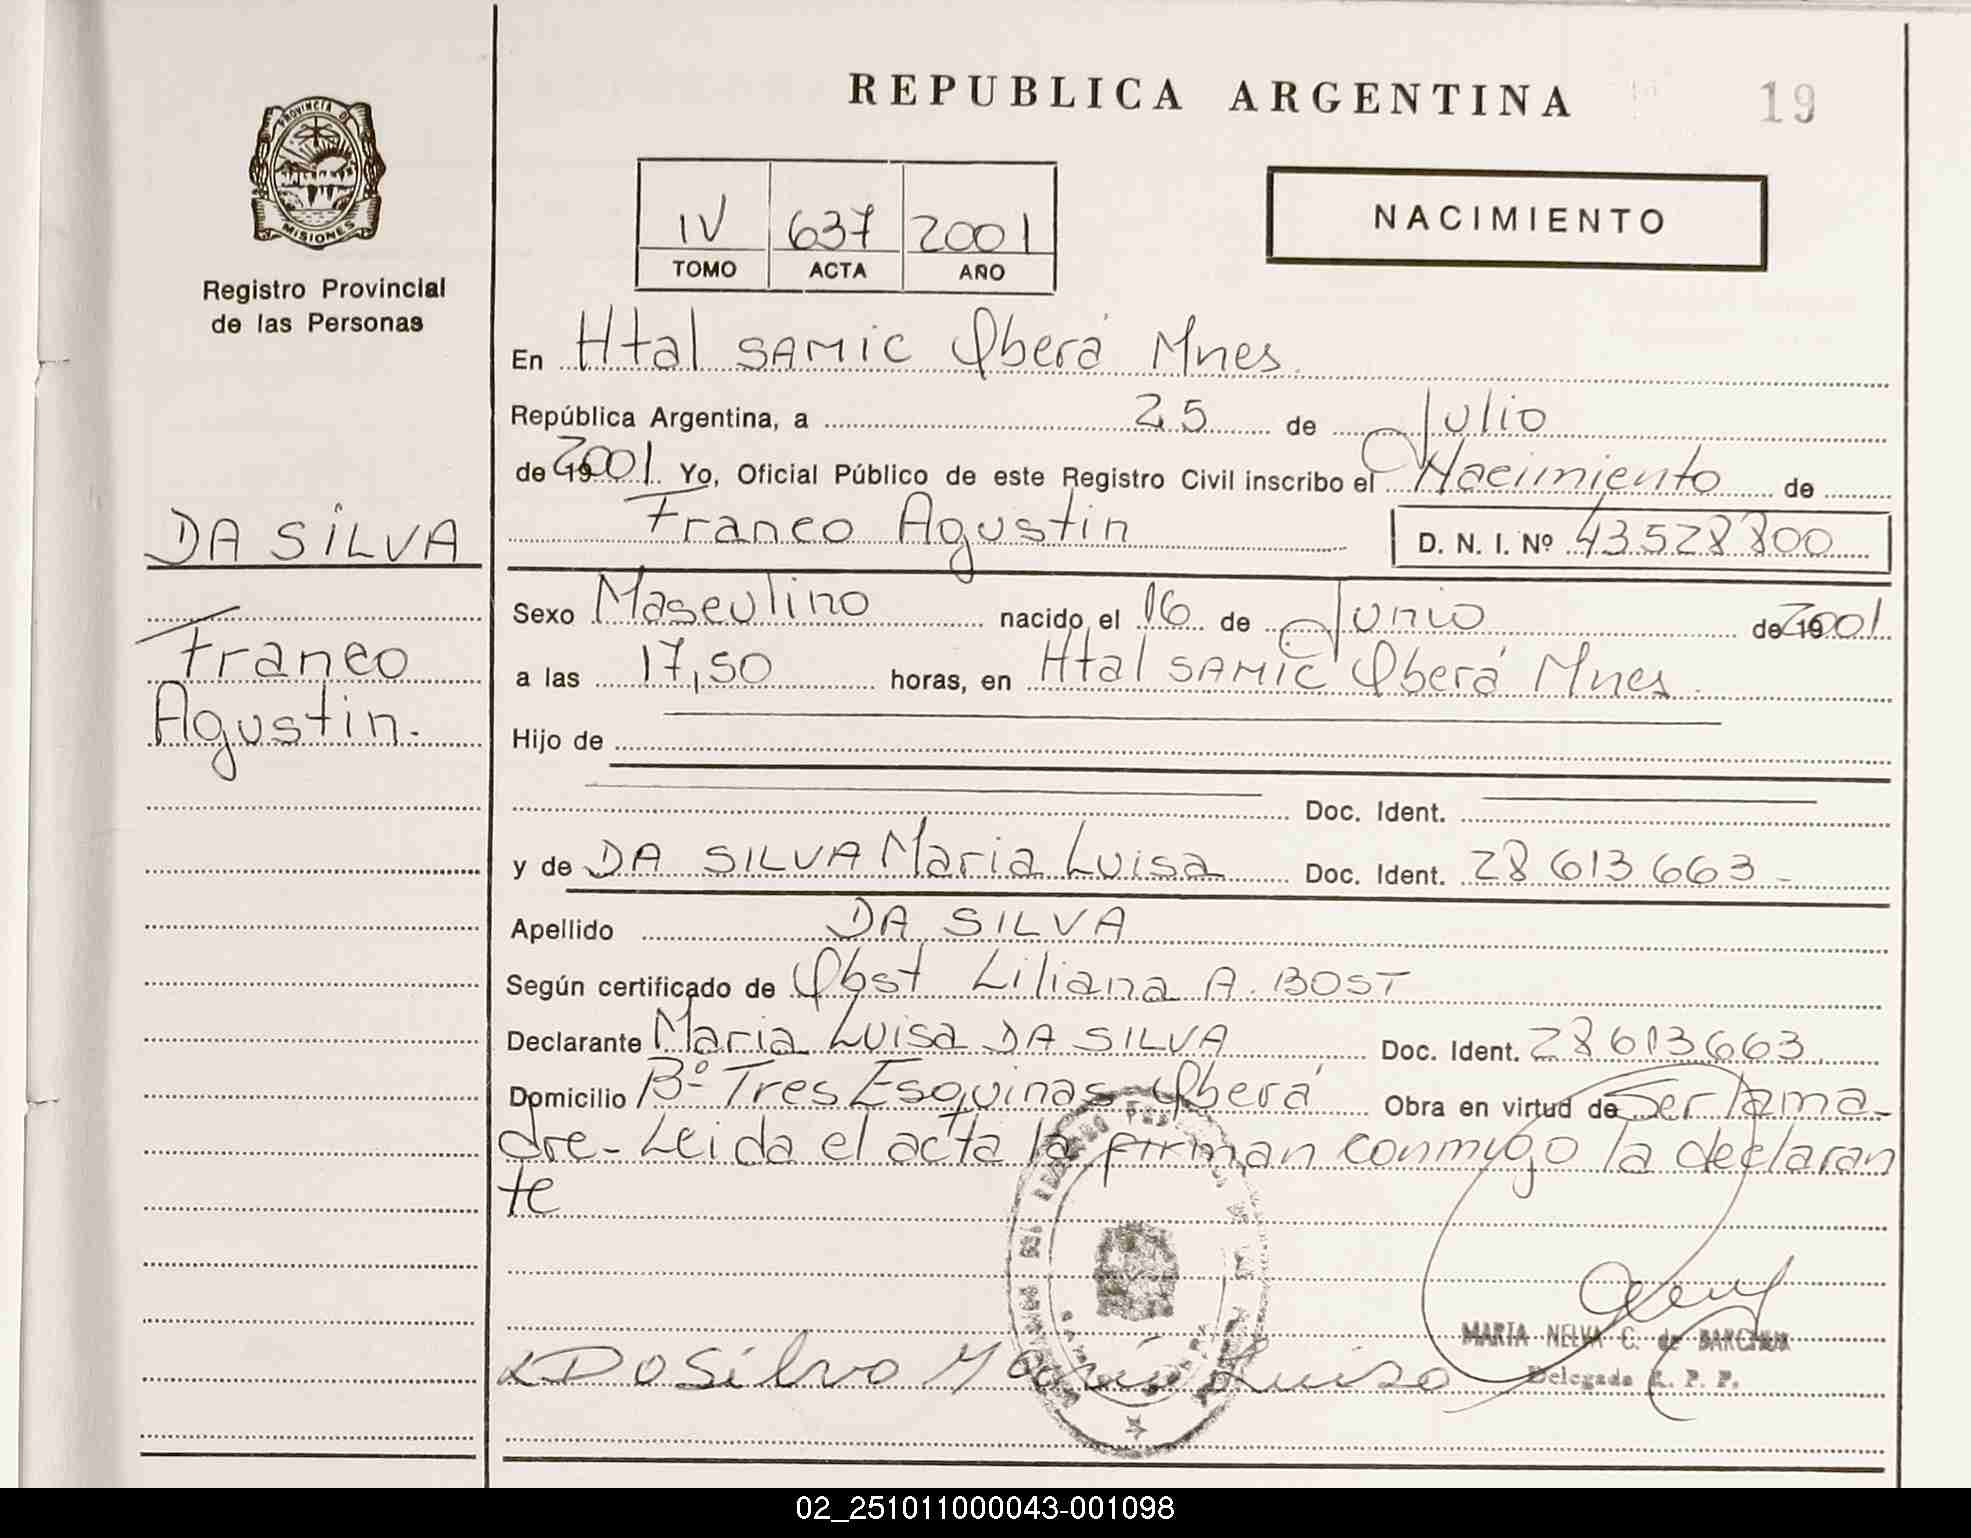 REPUBLICA ARGENTINA
19
PROVINCIA DE
MISIONES
Registro Provincial
de las Personas
IV 637 2001
TOMO ACTA AÑO
NACIMIENTO
En Htal SAMIC Oberá Mnes.
República Argentina, a 25 de Julio
de 19 2001. Yo, Oficial Público de este Registro Civil inscribo el Nacimiento de
Franco Agustin D. N. I. Nº 43.528.800
DA SILVA
Franco
Agustin.
Sexo Masculino nacido el 16 de Junio de 19 2001
a las 17,50 horas, en Htal SAMIC Oberá Mnes.
Hijo de
Doc. Ident.
y de DA SILVA Maria Luisa Doc. Ident. 28 613 663 -
Apellido DA SILVA
Según certificado de Obst Liliana A. BOST
Declarante Maria Luisa DA SILVA Doc. Ident. 28 613 663
Domicilio Bº Tres Esquinas Oberá Obra en virtud de Ser la ma-
dre- Leida el acta la firman conmigo la declaran
te
MARTA NELVA C. de
Delegada R. P. P.
Da Silva María Luisa
02_251011000043-001098